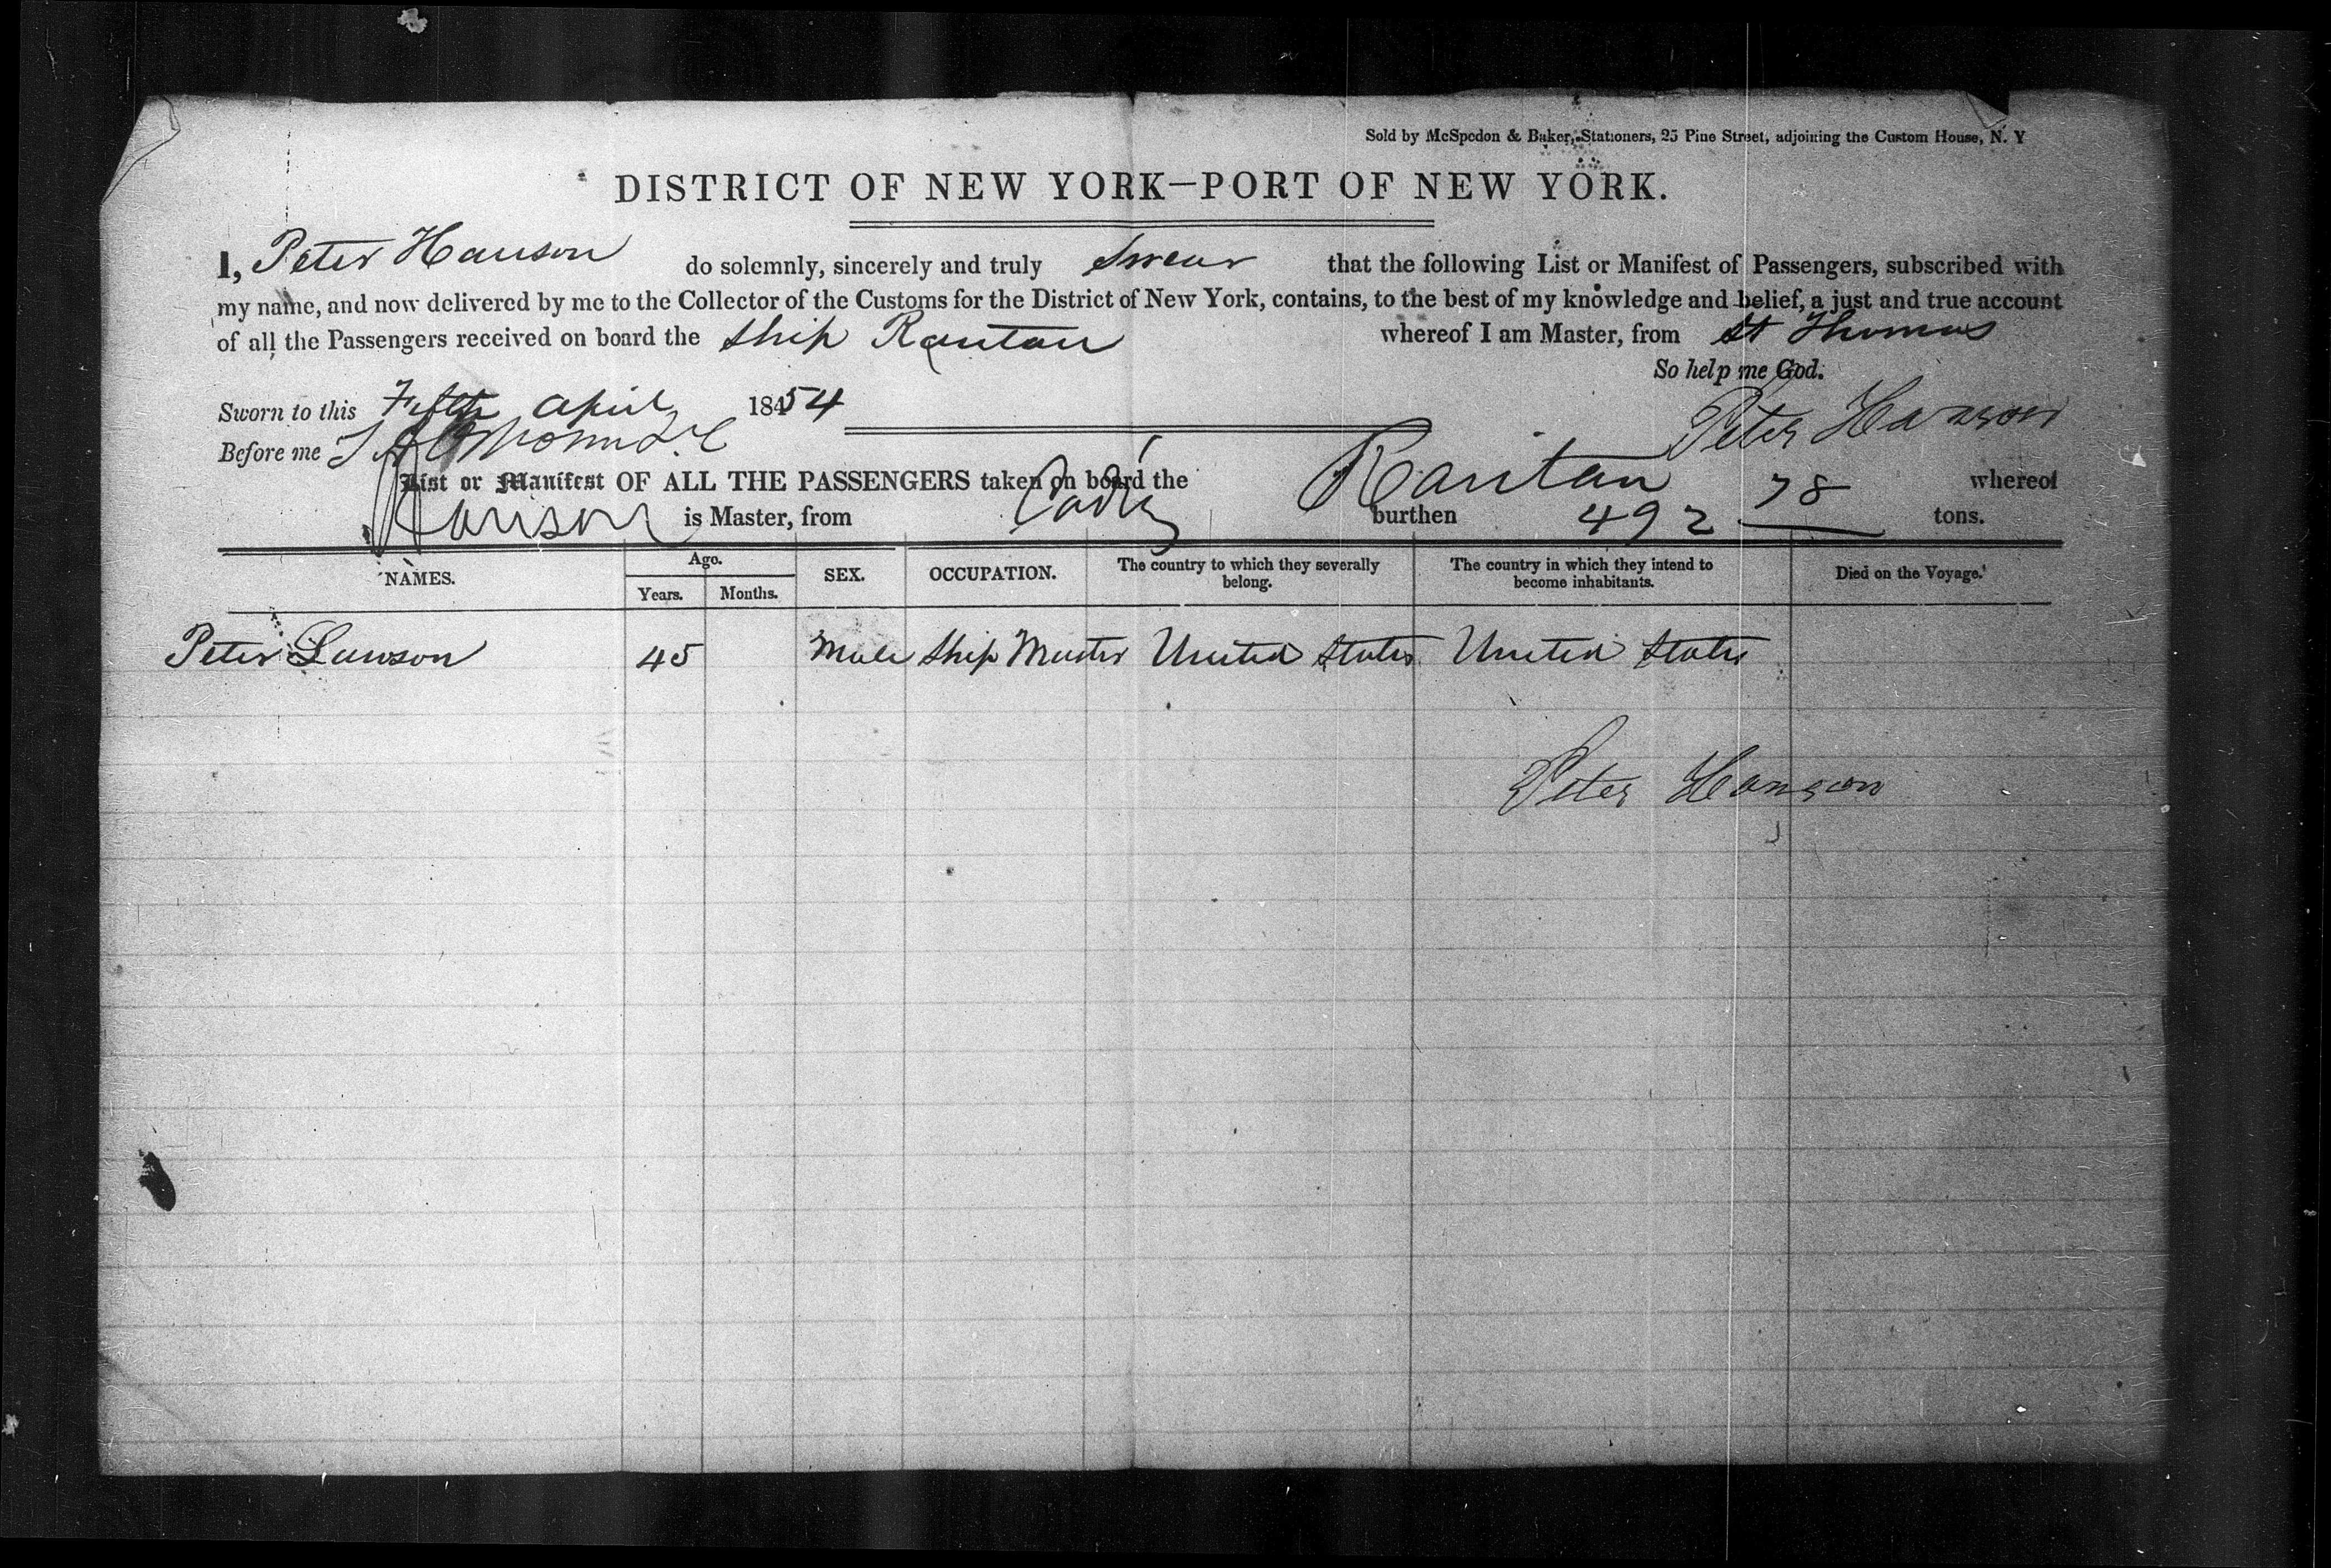 Sold by McSpedon & Baker, Stationers, 25 Pine Street, adjoining the Custom House, N. Y
DISTRICT OF NEW YORK—PORT OF NEW YORK.
I, Peter Hanson do solemnly, sincerely and truly Swear that the following List or Manifest of Passengers, subscribed with
my name, and now delivered by me to the Collector of the Customs for the District of New York, contains, to the best of my knowledge and belief, a just and true account
of all the Passengers received on board the Ship Raritan whereof I am Master, from St Thomas
So help me God.
Sworn to this Fifth April 1854
Peter Hanson
Before me
List or Manifest OF ALL THE PASSENGERS taken on board the Raritan whereof
Hanson is Master, from Cadiz burthen 492 78 tons.
NAMES. Age. Years. Months. SEX. OCCUPATION. The country to which they severally belong. The country in which they intend to become inhabitants. Died on the Voyage.
Peter Lawson 45 Male Ship Master United States United States
Peter Hanson